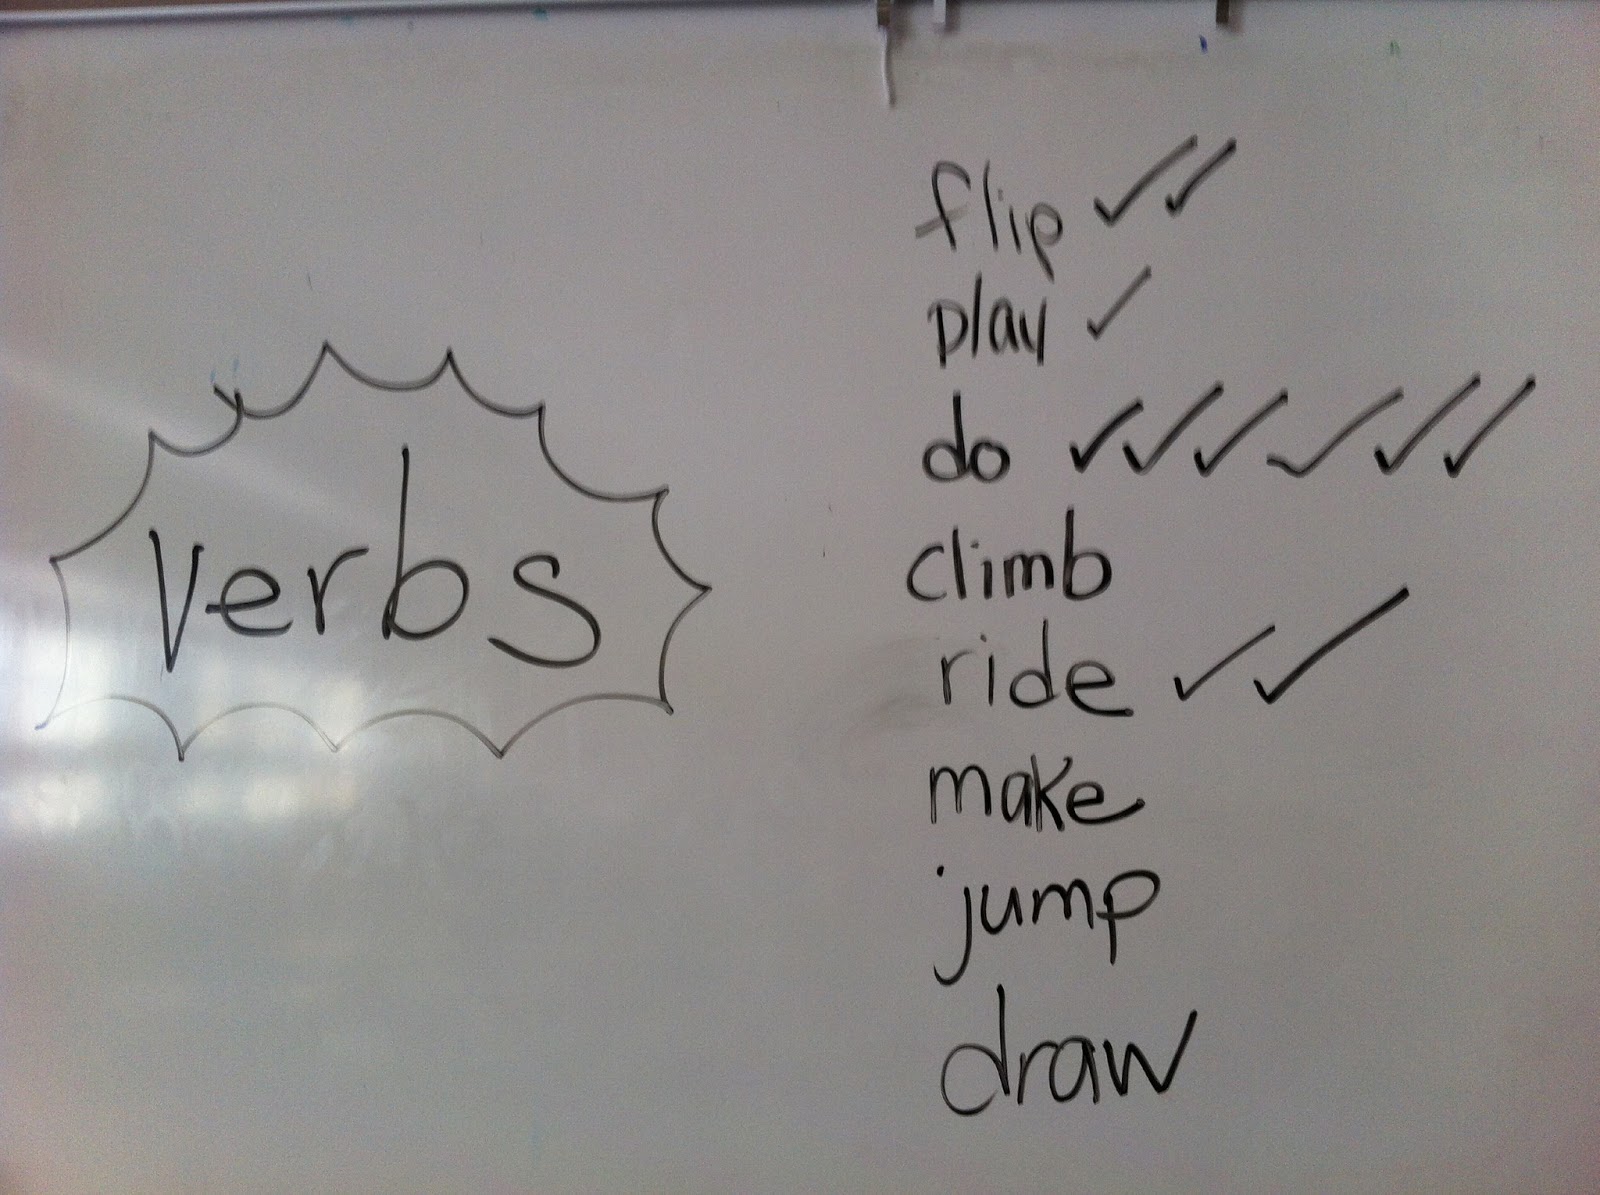 verbs
flip ✓✓
play ✓
do ✓✓✓✓✓✓
climb
ride ✓✓
make
jump
draw